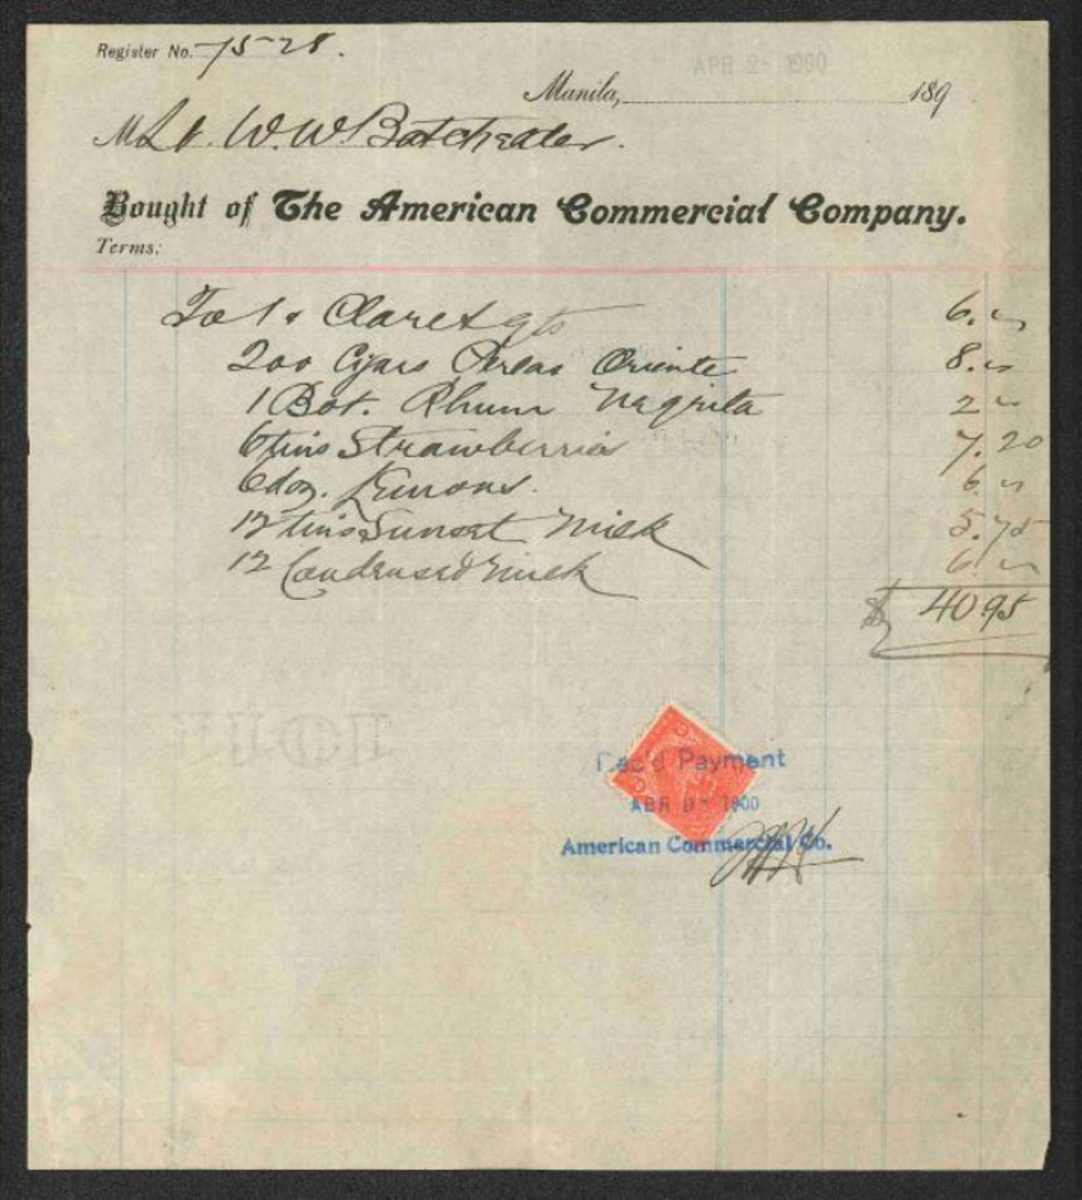 Register No. 7528.
APR 2- 1900
Manila, 189
M Lt. W. W. Batcheller.
Bought of The American Commercial Company.
Terms:
To 1 Claret qts 6.
200 Cigars Perlas Oriente 8.
1 Bot. Rhum Negrita 2
6 tins Strawberries 7.20
6 doz. Lemons. 6.
12 tins Sunset Milk 5.75
12 Condensed Milk 6.
$ 40.95
Rec'd Payment
ABR 1900
American Commercial Co.